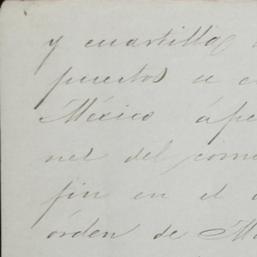 y cuartilla
puertos
México ápe
nel del com
fin en el
órden de M